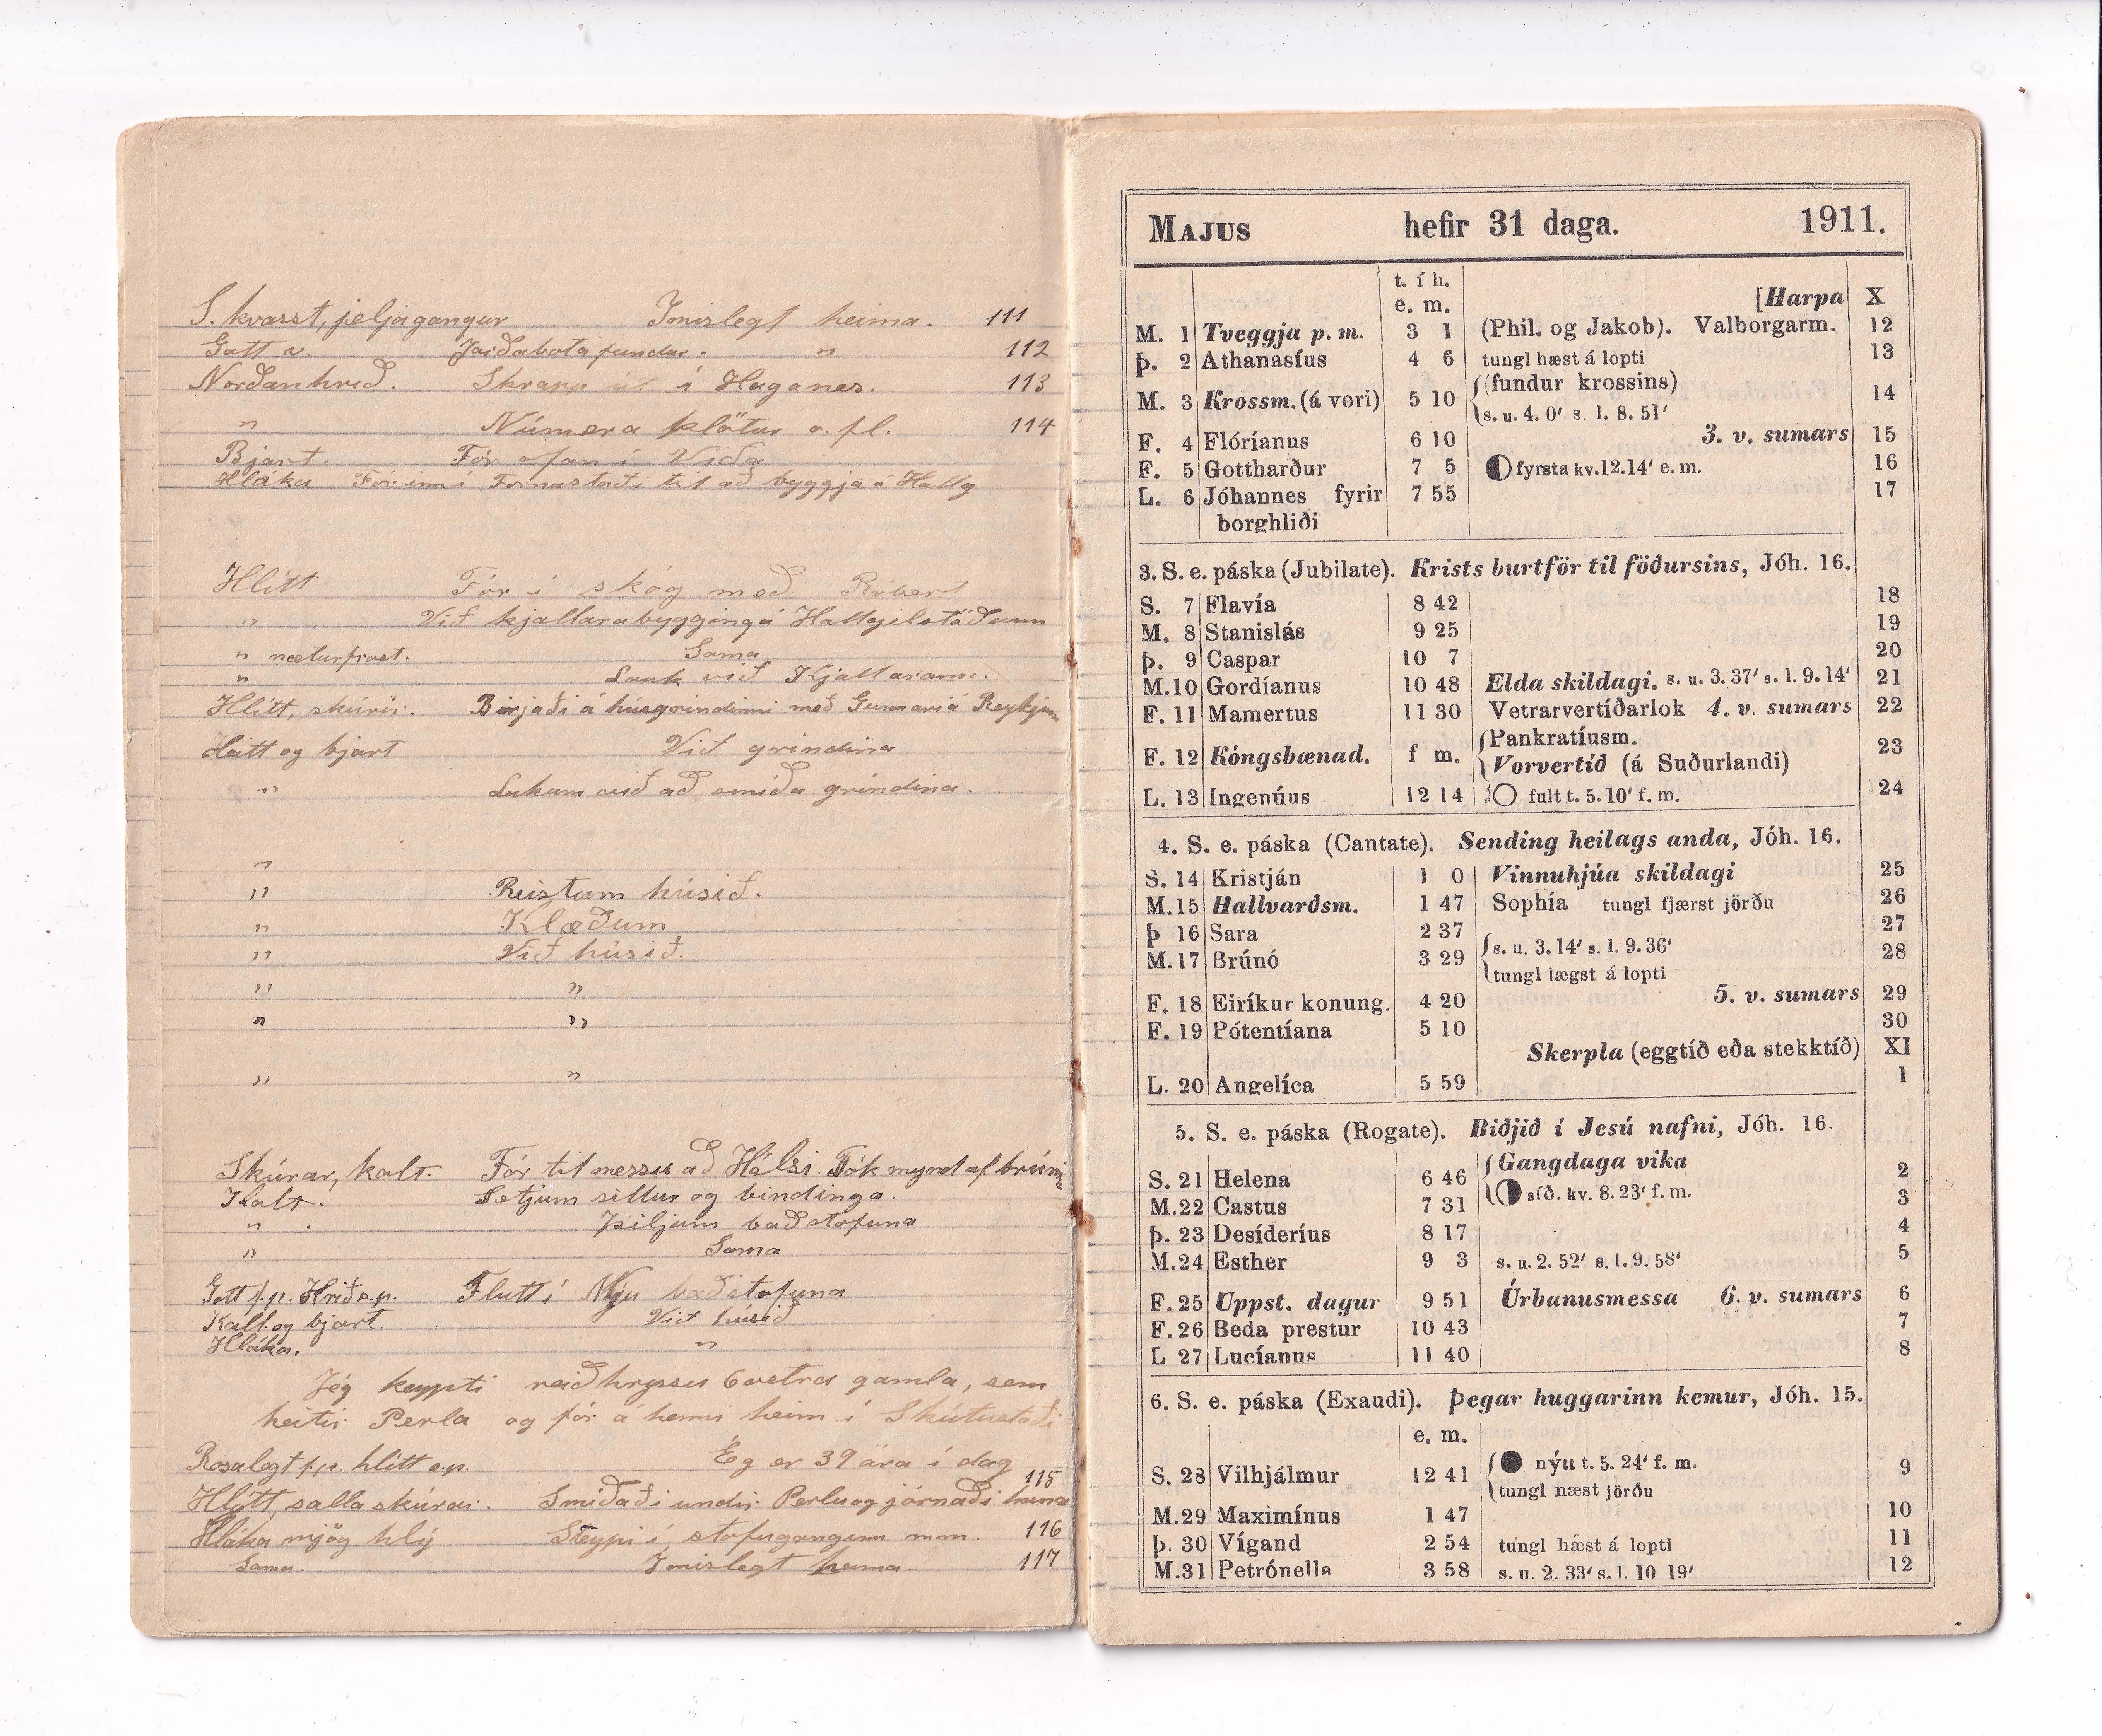 S. kvasst, jeljagangur Imislegt heima. 111
Gott v. Jarðabótafundur. " 112
Norðanhríð. Skrapp út í Haganes. 113
" Númera plötur o. fl. 114
Bjart. Fór ofan í Viða
Hláka Fór inn í Fornastaði til að byggja á Hallg
Hlítt Fór í skóg með Róbert
" Við kjallarabygging á Hallgilstöðum
" næturfrost. Sama
" Lauk við Kjallarann.
Hlítt, skúrir. Birjaði á húsgrindinni með Gunnari á Reykjum
Heitt og bjart Við grindina
" Lukum við að smíða grindina.
"
" Reistum húsið.
" Klæðum
" Við húsið.
" "
" "
" "
Skúrar, kalt. Fór til messu að Hálsi. Tók mynd af brúnni
Kalt. Setjum sillur og bindinga.
" Þiljum baðstofuna
" Sama
Gott f.p. Hríð e.p. Flutt í Nýju baðstofuna
Kalt og bjart. Við húsið
Hláka. "
Jég keypti reiðhryssu 6 vetra gamla, sem
heitir Perla og fór á henni heim í Skútustaði
Rosalegt f.p. hlítt e.p. Ég er 39 ára í dag
Hlítt, salla skúrar. Smíðaði undir Perlu og járnaði hana 115
Hláka mjög hlý Steypi í stofuganginn 116
Sama. Imislegt heima. 117
MAJUS hefir 31 daga. 1911.
t. í h.
e. m. [Harpa X
M. 1 Tveggja p. m. 3 1 (Phil. og Jakob). Valborgarm. 12
Þ. 2 Athanasíus 4 6 tungl hæst á lopti 13
M. 3 Krossm. (á vori) 5 10 (fundur krossins) 14
s. u. 4. 0' s. l. 8. 51'
F. 4 Flóríanus 6 10 3. v. sumars 15
F. 5 Gottharður 7 5 fyrsta kv. 12. 14' e. m. 16
L. 6 Jóhannes fyrir 7 55 17
borghliði
3. S. e. páska (Jubilate). Krists burtför til föðursins, Jóh. 16.
S. 7 Flavía 8 42 18
M. 8 Stanislás 9 25 19
Þ. 9 Caspar 10 7 20
M. 10 Gordíanus 10 48 Elda skildagi. s. u. 3. 37' s. l. 9. 14' 21
F. 11 Mamertus 11 30 Vetrarvertíðarlok 4. v. sumars 22
F. 12 Kóngsbænad. f m. Pankratíusm. 23
Vorvertíð (á Suðurlandi)
L. 13 Ingenúus 12 14 fult t. 5. 10' f. m. 24
4. S. e. páska (Cantate). Sending heilags anda, Jóh. 16.
S. 14 Kristján 1 0 Vinnuhjúa skildagi 25
M. 15 Hallvarðsm. 1 47 Sophía tungl fjærst jörðu 26
Þ 16 Sara 2 37 27
M. 17 Brúnó 3 29 s. u. 3. 14' s. l. 9. 36' 28
tungl lægst á lopti
F. 18 Eiríkur konung. 4 20 5. v. sumars 29
F. 19 Pótentíana 5 10 30
Skerpla (eggtíð eða stekktíð) XI
L. 20 Angelíca 5 59 1
5. S. e. páska (Rogate). Biðjið í Jesú nafni, Jóh. 16.
S. 21 Helena 6 46 Gangdaga vika 2
síð. kv. 8. 23' f. m.
M. 22 Castus 7 31 3
Þ. 23 Desíderíus 8 17 4
M. 24 Esther 9 3 s. u. 2. 52' s. l. 9. 58' 5
F. 25 Uppst. dagur 9 51 Úrbanusmessa 6. v. sumars 6
F. 26 Beda prestur 10 43 7
L 27 Lucíanus 11 40 8
6. S. e. páska (Exaudi). Þegar huggarinn kemur, Jóh. 15.
e. m.
S. 28 Vilhjálmur 12 41 nýtt t. 5. 24' f. m. 9
tungl næst jörðu
M. 29 Maximínus 1 47 10
Þ. 30 Vígand 2 54 tungl hæst á lopti 11
M. 31 Petrónella 3 58 s. u. 2. 33' s. l. 10 19' 12